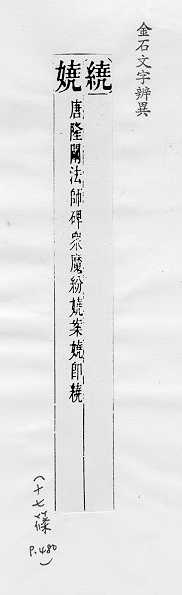 金石文字辨異
繞
嬈唐隆闡法師碑衆魔紛嬈案嬈即繞
(十七篠
P.480)